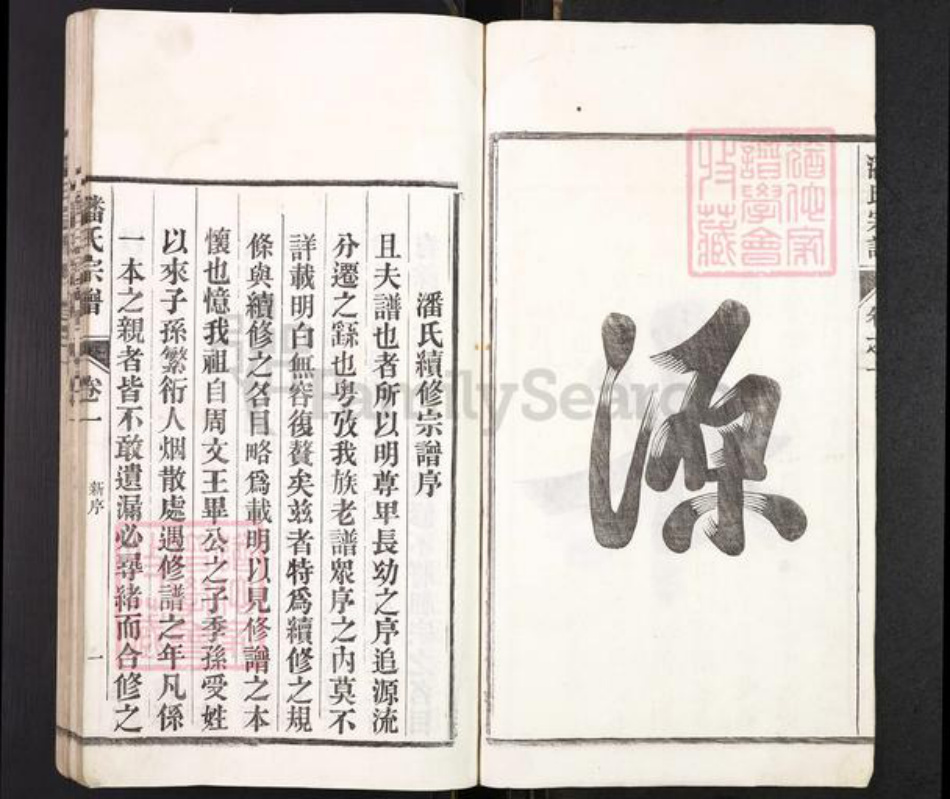 源
潘氏宗譜
潘氏續修宗譜序
且夫譜也者所以明尊卑長幼之序追源流
分遷之繇也粵攷我族老譜眾序之內莫不
詳載明白無容復贅矣茲者特為續修之規
條與續修之名目略為載明以見修譜之本
懷也憶我祖自周文王畢公之子季孫受姓
以來子孫繁衍人烟散處遇修譜之年凡係
一本之親者皆不敢遺漏必尋緒而合修之
潘氏宗譜 卷一 新序 一
FamilySearch